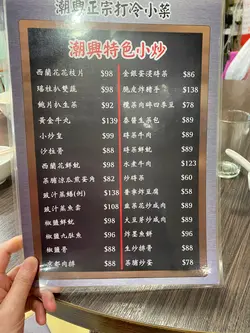 潮興正宗打冷小菜
潮興特色小炒
西蘭花花枝片 $98
瑤柱扒雙蔬 $98
鮑片扒生菜 $192
黃金牛丸 $139
小炒皇 $99
沙拉骨 $88
西蘭花鮮魷 $98
菜脯涼瓜煎蛋角 $82
豉汁蒸鱔(例) $138
豉汁蒸魚雲 $108
椒鹽鮮魷 $88
椒鹽九肚魚 $96
椒鹽骨 $88
京都肉排 $88
金銀蛋浸時菜 $86
脆皮炸豬手 $138
欖菜肉碎四季豆 $78
泰醬生菜包 $88
時菜牛肉 $89
時菜鮮魷 $89
水煮牛肉 $123
炒時菜 $60
豉味炒豆腐 $88
韭菜花炒咸肉 $89
大豆芽炒咸肉 $89
炸墨魚餅 $88
生炒排骨 $88
菜脯炒蛋 $78